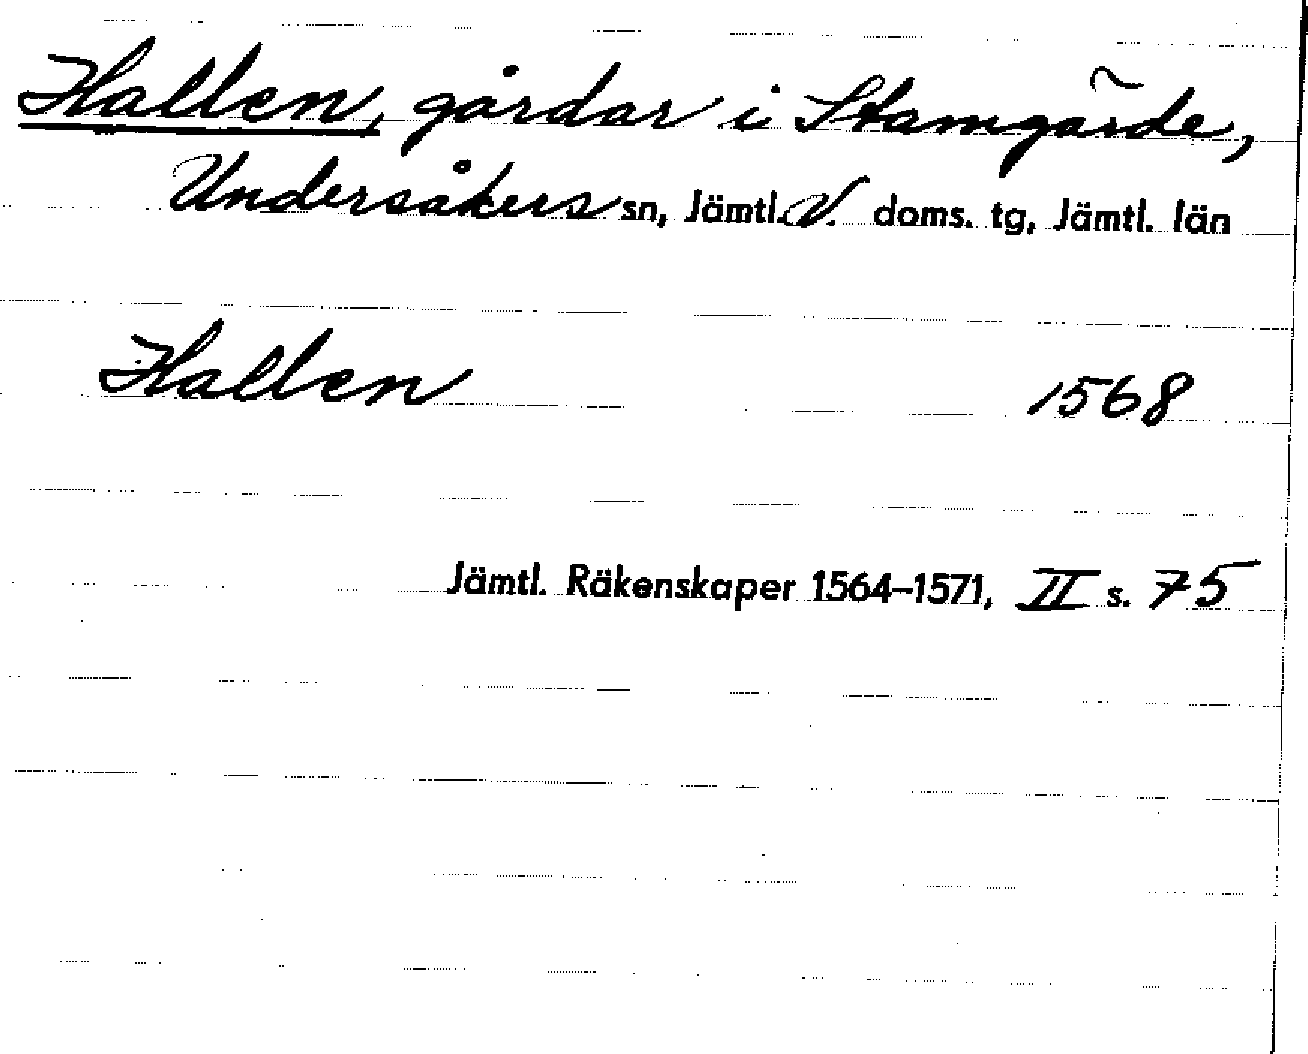 Hallen, gårdar i Stamgärde,
Undersåkers sn, Jämtl. V. doms. tg, Jämtl. län
Hallen 1568
Jämtl. Räkenskaper 1564–1571, II s. 75